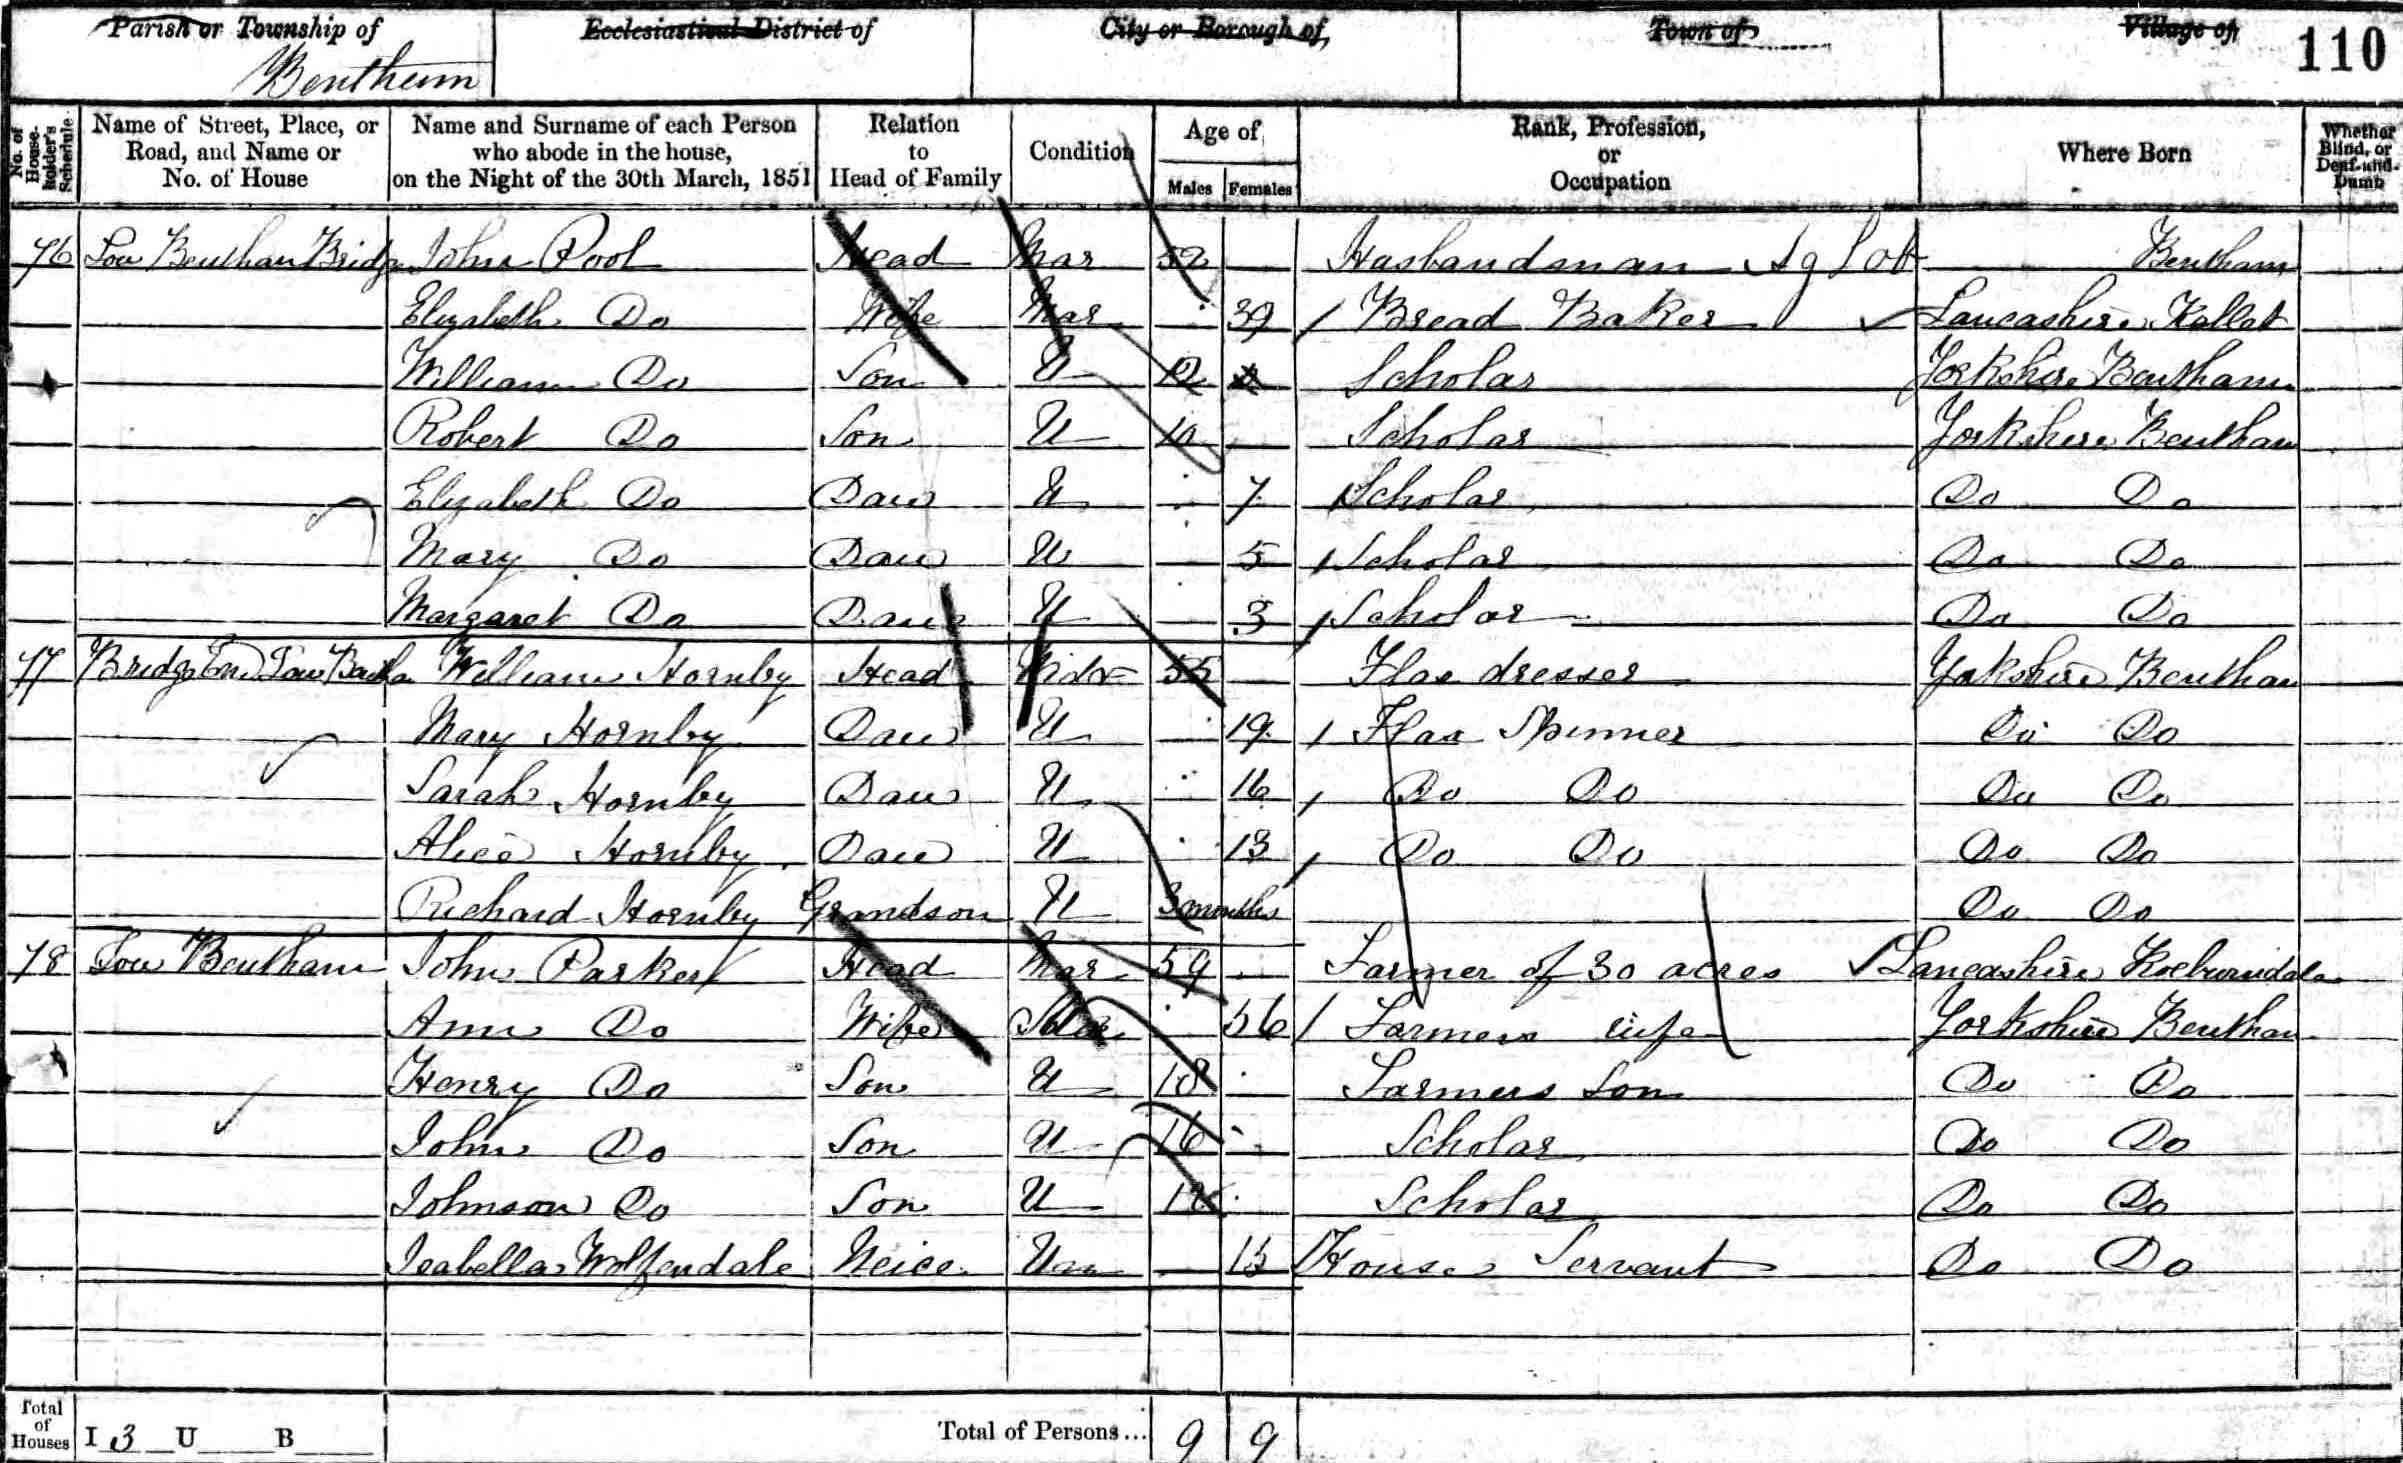 Parish or Township of Ecclesiastical District of City or Borough of, Town of Village of 110
Bentham
No. of House-holder's Schedule Name of Street, Place, or Road, and Name or No. of House Name and Surname of each Person who abode in the house, on the Night of the 30th March, 1851 Relation to Head of Family Condition Age of Males Females Rank, Profession, or Occupation Where Born Whether Blind, or Deaf-and-Dumb
76 Low Bentham Bridge John Pool Head Mar 52 Husbandman Ag Lab Bentham
Elizabeth Do Wife Mar 39 Bread Baker Lancashire Kellet
William Do Son U 12 Scholar Yorkshire Bentham
Robert Do Son U 10 Scholar Yorkshire Bentham
Elizabeth Do Dau U 7 Scholar Do Do
Mary Do Dau U 5 Scholar Do Do
Margaret Do Dau U 3 Scholar Do Do
77 Bridge End Low Bentha William Hornby Head Widr 55 Flax dresser Yorkshire Bentham
Mary Hornby Dau U 19 Flax Spinner Do Do
Sarah Hornby Dau U 16 Do Do Do Do
Alice Hornby Dau U 13 Do Do Do Do
Richard Hornby Grandson U 3 months Do Do
78 Low Bentham John Parker Head Mar 59 Farmer of 30 acres Lancashire Roeburndale
Ann Do Wife 56 Farmers wife Yorkshire Bentham
Henry Do Son U 18 Farmers Son Do Do
John Do Son U 16 Scholar Do Do
Johnson Do Son U 12 Scholar Do Do
Isabella Wolfendale Neice Un 15 House Servant Do Do
Total of Houses I 3 U B Total of Persons... 9 9